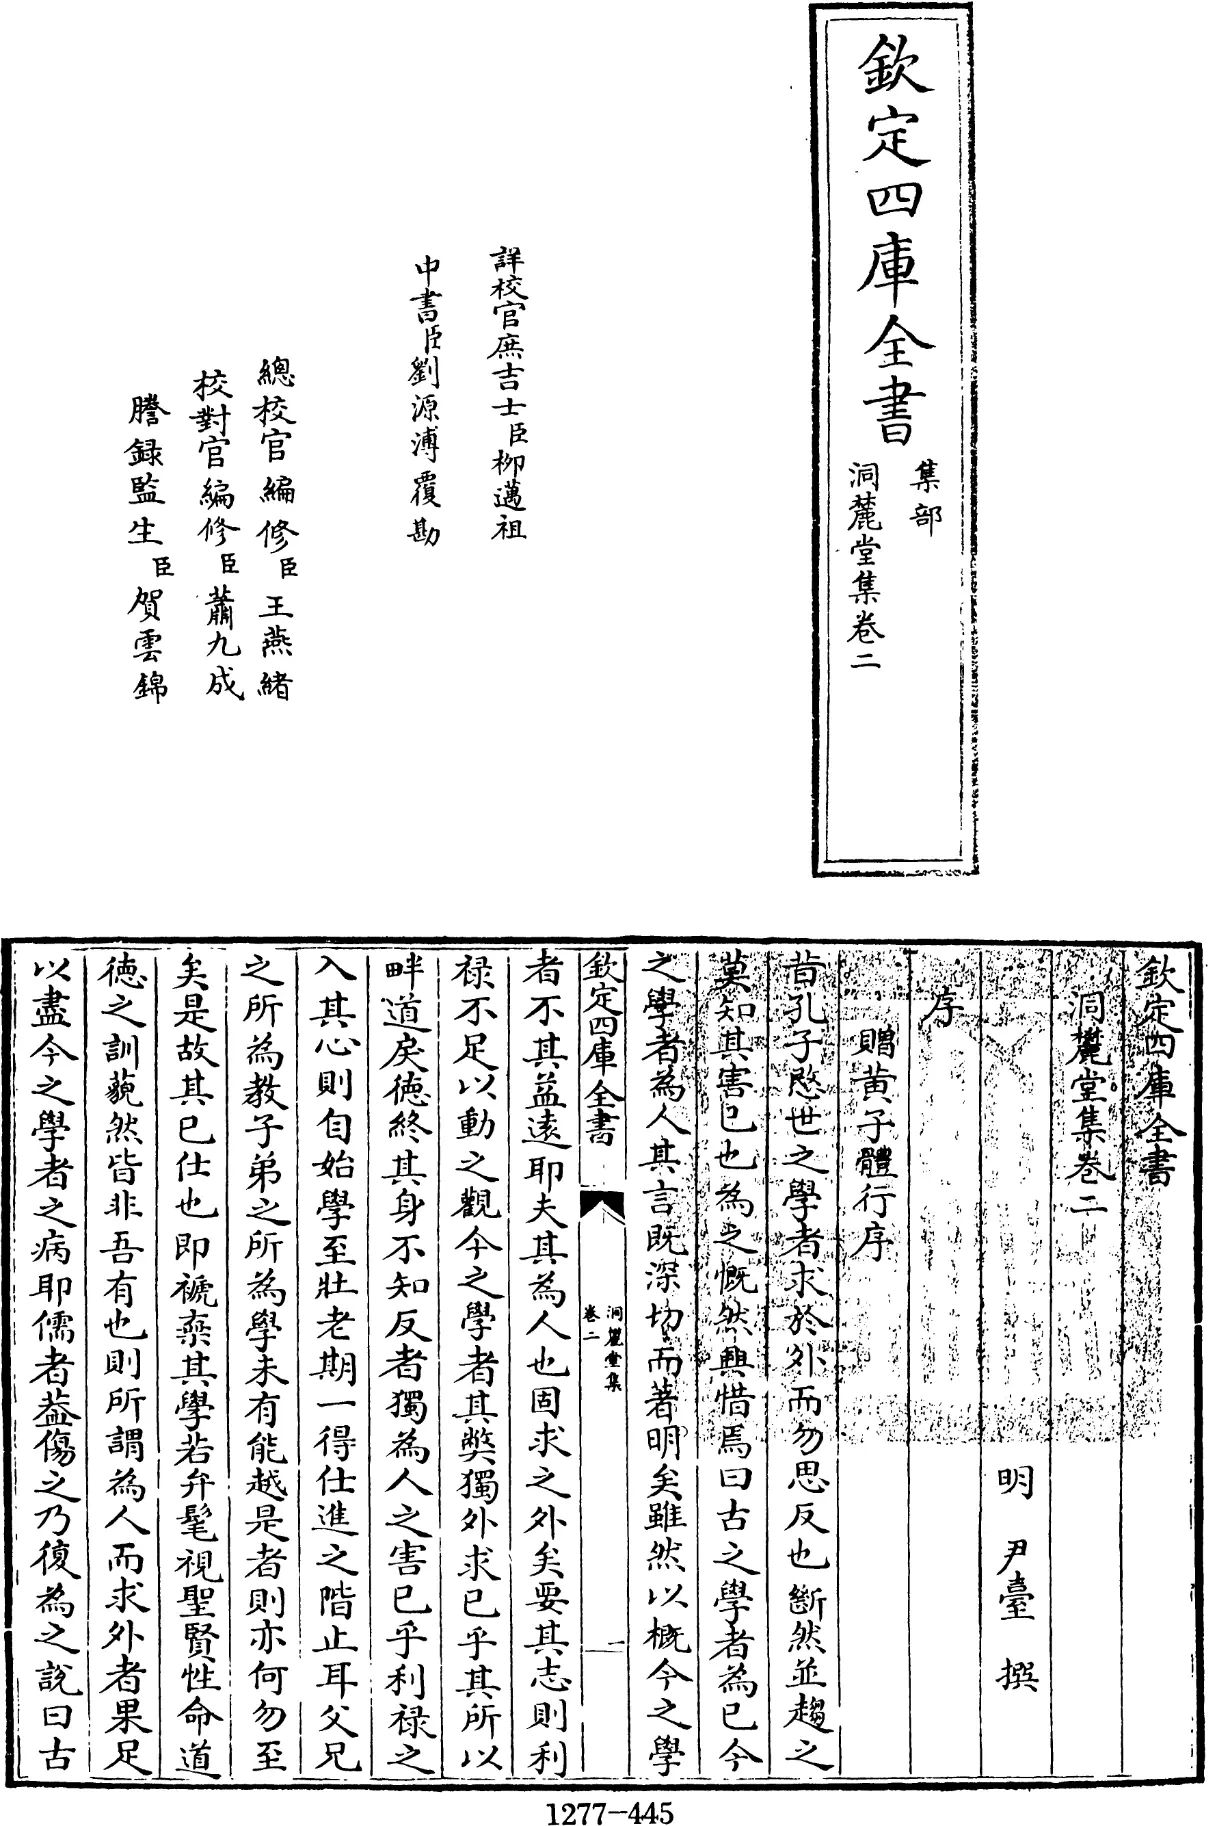 欽定四庫全書
集部
洞麓堂集卷二
詳校官庶吉士臣柳邁祖
中書臣劉源溥覆勘
總校官編修臣王燕緒
校對官編修臣蕭九成
謄録監生臣賀雲錦
欽定四庫全書
洞麓堂集卷二
明 尹臺 撰
序
贈黄子體行序
昔孔子愍世之學者求於外而勿思反也斷然並趨之
莫知其害已也為之慨然興惜焉曰古之學者為已今
之學者為人其言既深切而著明矣雖然以概今之學
欽定四庫全書
洞麓堂集
卷二
一
者不其益遠耶夫其為人也固求之外矣要其志則利
禄不足以動之觀今之學者其獘獨外求已乎其所以
畔道戾徳終其身不知反者獨為人之害已乎利禄之
入其心則自始學至壯老期一得仕進之階止耳父兄
之所為教子弟之所為學未有能越是者則亦何勿至
矣是故其已仕也即褫棄其學若弁髦視聖賢性命道
徳之訓藐然皆非吾有也則所謂為人而求外者果足
以盡今之學者之病耶儒者葢傷之乃復為之説曰古
1277-445